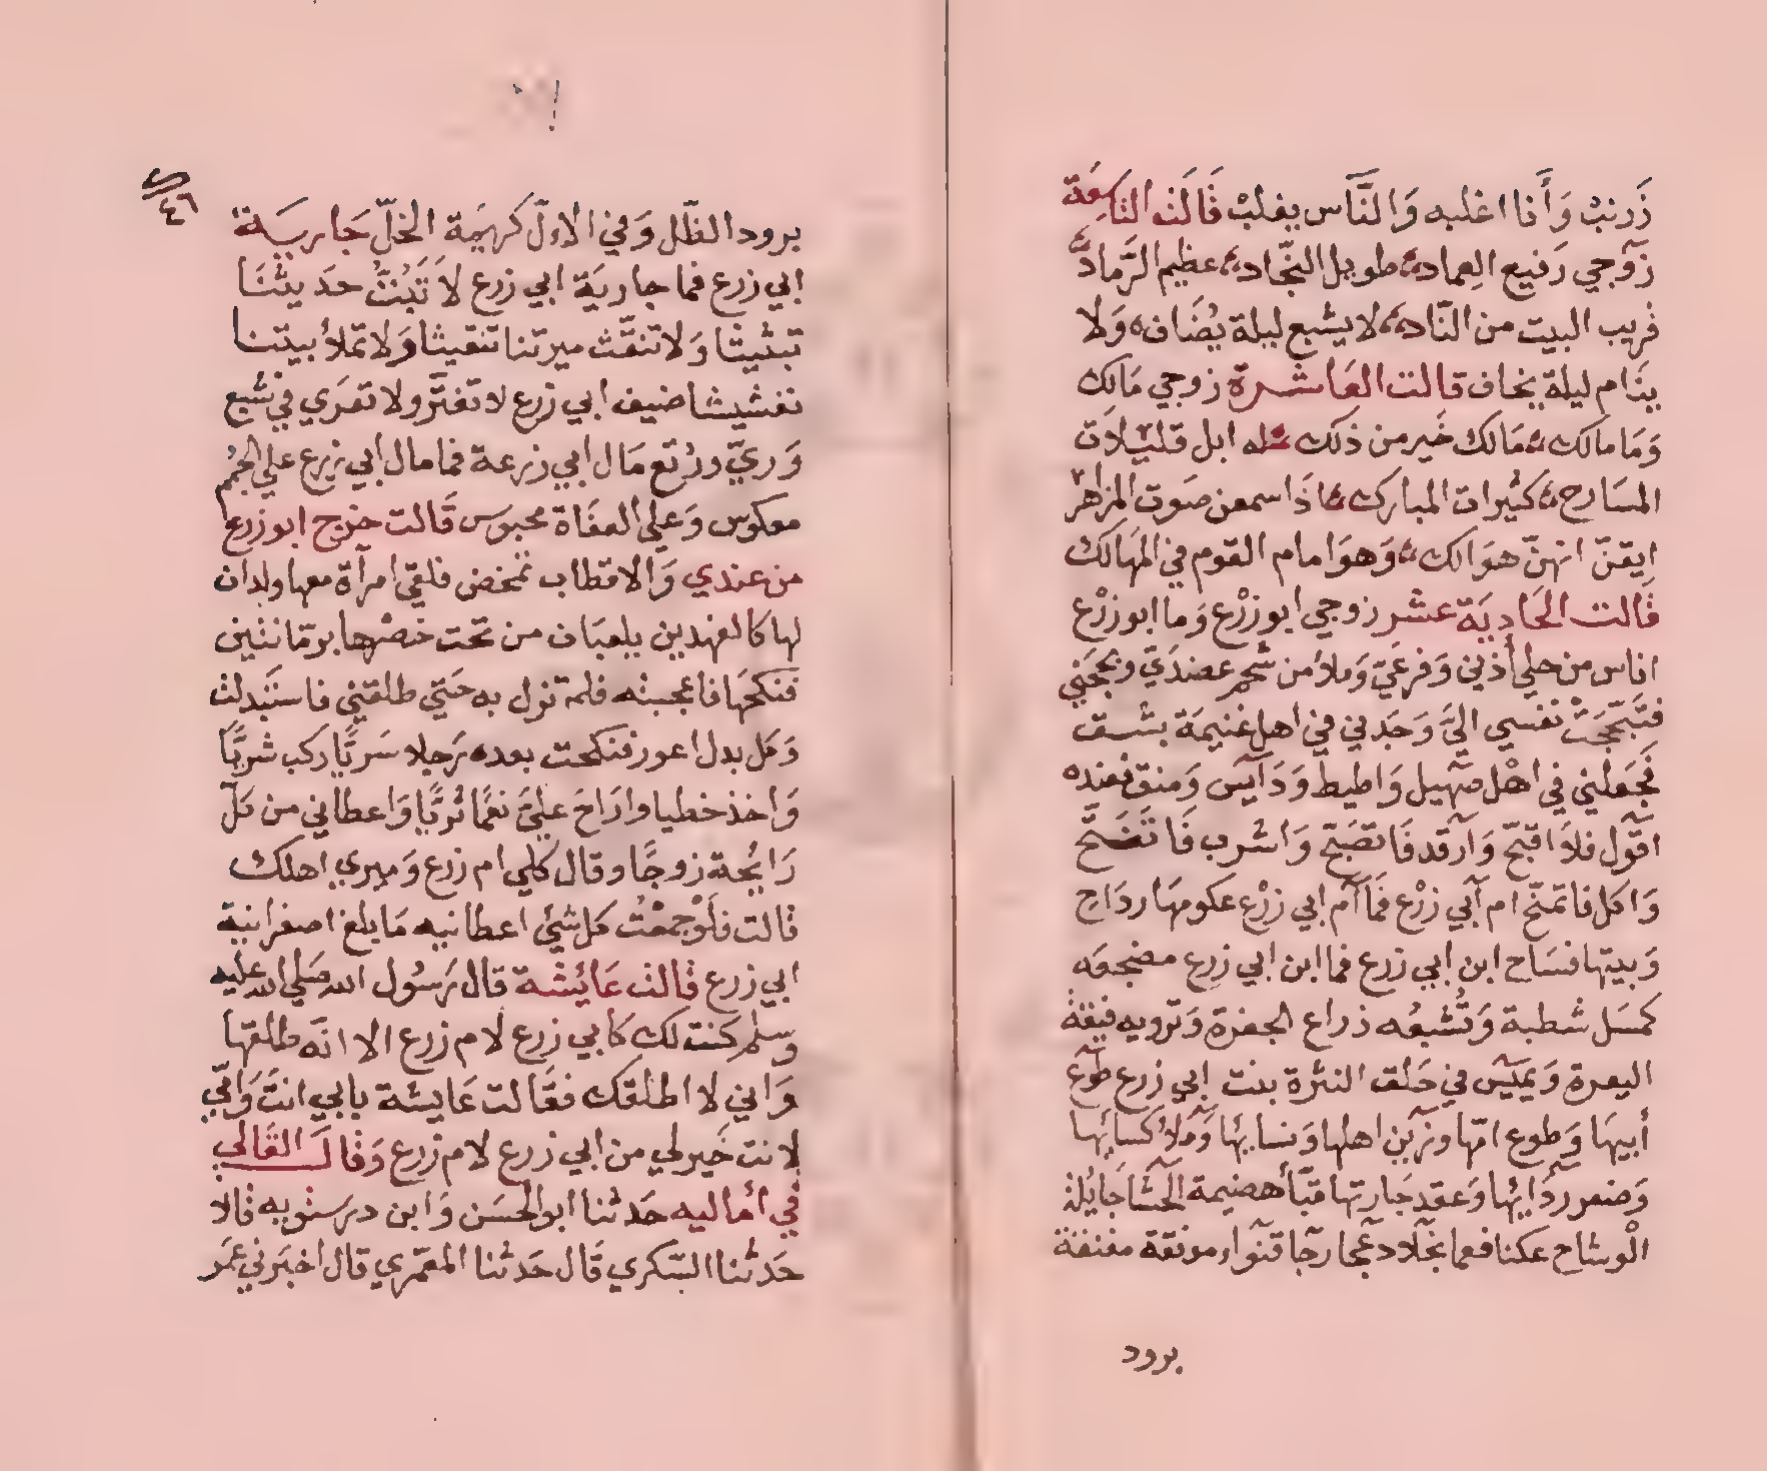 زَرنبْ وَأَنا اغلبه وَالنَّاس يغلبْ قَالَت التَاسِعَة
زَوجي رَفيع العِماد طويل النجّاد عظيم الرَّماد
قريب البيت من النّاد لا يشبع ليلة يُضَاف وَلا
ينَام ليلة يخاف قالت العَاشرة زوجي مَالك
وَمَا مالك مَالك خَير من ذلك له ابل قليلَات
المسَارح كثيرات المبارك اذَا سمعن صَوت المزاهر
ايقنّ انهنّ هوَالك وَهوَ امام القوم في المهَالك
قالت الحَاديَة عشر زوجي ابو زرْع وَما ابو زرْع
اناس من حلي أذني وَفرعَيّ وَملأ من شحم عضديّ وبجّحَني
فتبَجّحَتْ نفسي اليَّ وَجَدني في اهل غنيمَة بشق
فجَعلني في اهْل صَهيل وَاطيط وَدَايس وَمنق فعنده
اقول فلا اقبحّ وَارقد فَاتصَبّح وَاشرب فَاتَقَمَّح
وَاكل فاتمنّح ام أبي زرْع فمَا أم ابي زرْع عكومهَا ردَاح
وَبيتها فسَاح ابن ابي زرع فما ابن ابي زرع مضجعه
كمسَل شطبة وَتُشبعُه ذراع الجفرة وَترويه فيقة
اليعرة وَيميَس في حَلق النثرة بنت ابي زرع طَوع
أبيهَا وَطوع امّها وزين اهلها وَنسايها وَملأ كسايها
وَصفر رِدَايهَا وَعقد جَارتها قبّأ هضيمة الحشَا جَايلة
الْوشاح عكنا فعما نجلا دعجا رجّا قنوا مونقة مفنقة
برود
٤٦
برود الظّل وَفي الاول كَريمَة الخلّ جَاريَة
ابي زرع فما جاريَة ابي زرع لاَ تَبُثُّ حَديثنَا
تبثيثا وَلا تنقّث ميرتنا تنقيثا وَلا تملأ بيتنا
تغشيشا ضيف ابي زرع لا تفترّ ولا تعرَي في شبع
وَريّ ورُتع مَال ابي زرعة فما مال ابي زرع علي الجمُم
معكوس وَعلي العفَاة محبوس قَالت خرج ابو زرع
من عندي وَالاقطاب تمخض فلقي امرأة معها ولدان
لها كالفهدين يلعبَان من تحت خصْرها برمّانتين
فنكحَهَا فاعجبته فلم تزل به حَتي طلقني فاستَبدلت
وَكل بدل اعور فنكحت بعده رَجلا سَريًّا ركب شريًّا
وَاخذ خطيا وارَاحَ عليَّ نعمًا ثريًّا وَاعطاني من كلّ
رَايحة زوجًا وقال كلي ام زرع وَميري اهلك
قالت فلَوْ جمعْتُ كل شيْ اعطانيه مَا بلغ اصغر انية
ابي زرع قالت عَائشة قال رَسُول الله صَلي الله عليه
وسلم كنت لك كابي زرع لام زرع الا انّه طلقهَا
وَاني لا اطلقك فقَالت عَايشة بابي انتَ وَامّي
لانت خَير لي من ابي زرع لام زرع وَقالَ القالي
في أماليه حَدثنا ابو الحسَن وَابن درَستويه قالا
حَدثنا السّكري قَال حَدثنا المعمّري قال اخبَرني عمَر